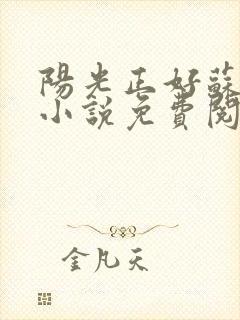 陽光正好蘇
小說免費閱
金凡天